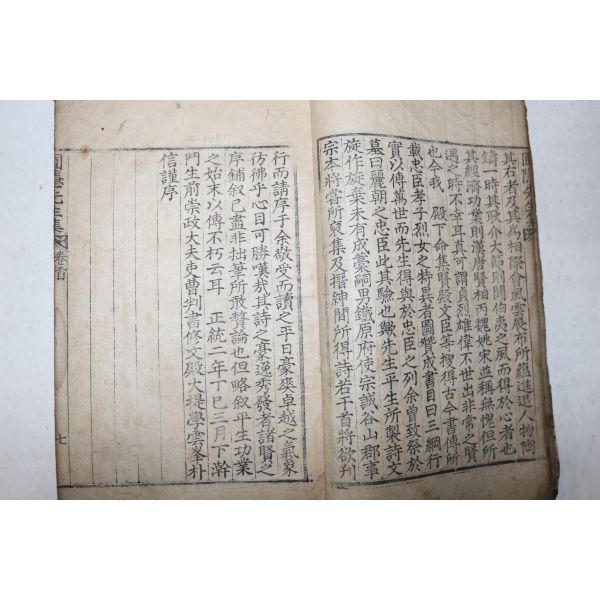 其右者及其爲相際會風雲展布所蘊進退人物陶
鑄一時其耿介大節則聞伯夷之風而得於心者也
其經濟功業則漢唐賢相丙魏姚宋並稱無愧但所
遇之時不幸耳眞可謂貞烈雄偉不世出非常之賢
也今我 殿下命集賢殿文臣等搜得古今書傳所
載忠臣孝子烈女之特異者圖贊成書目曰三綱行
實以傳萬世而先生得與於忠臣之列余曾致祭於
墓曰麗朝之忠臣此其驗也歟先生平生所製詩文
旋作旋棄未有成藁嗣男鐵原府使宗誠谷山郡事
宗本將嘗所裒集及搢紳間所得詩若干首將欲刊
行而請序于余敬受而讀之平日豪爽卓越之氣象
彷彿乎心目可勝嘆哉其詩之豪逸秀發者諸賢之
序鋪叙已盡非拙筆所敢贅論也但略叙平生功業
之始末以傳不朽云耳 正統二年丁巳三月下澣
門生前崇政大夫吏曹判書修文殿大提學雲峯朴
信謹序
圃隱先生集 卷首 七